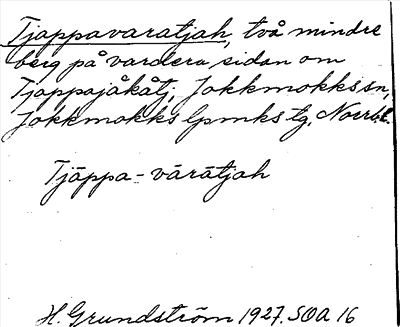 Tjappavaratjah, två mindre
berg på vardera sidan om
Tjappajåkåtj, Jokkmokks sn,
Jokkmokks lpmks tg, Norrb. l.
Tjäppa-vāràtjah
H. Grundström 1927. SOA 16